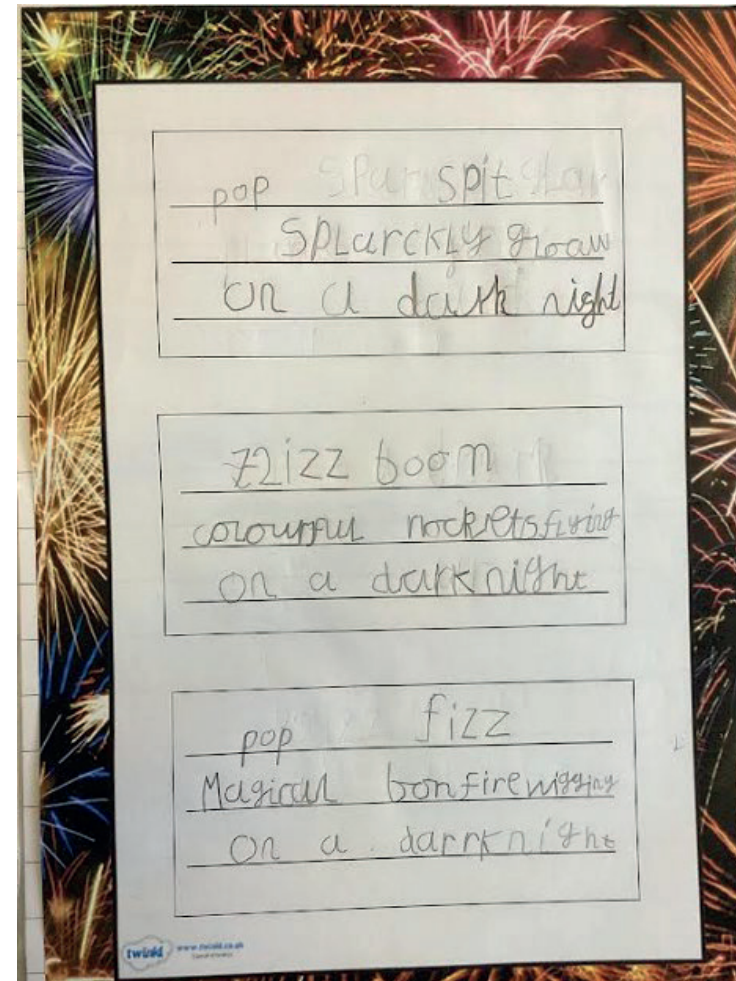 pop spit
SPLarckLy groaw
on a dark night
fzizz boom
colourful rockets flying
on a dark night
pop fizz
Magical bonfire wigging
on a darrk night
twinkl www.twinkl.co.uk